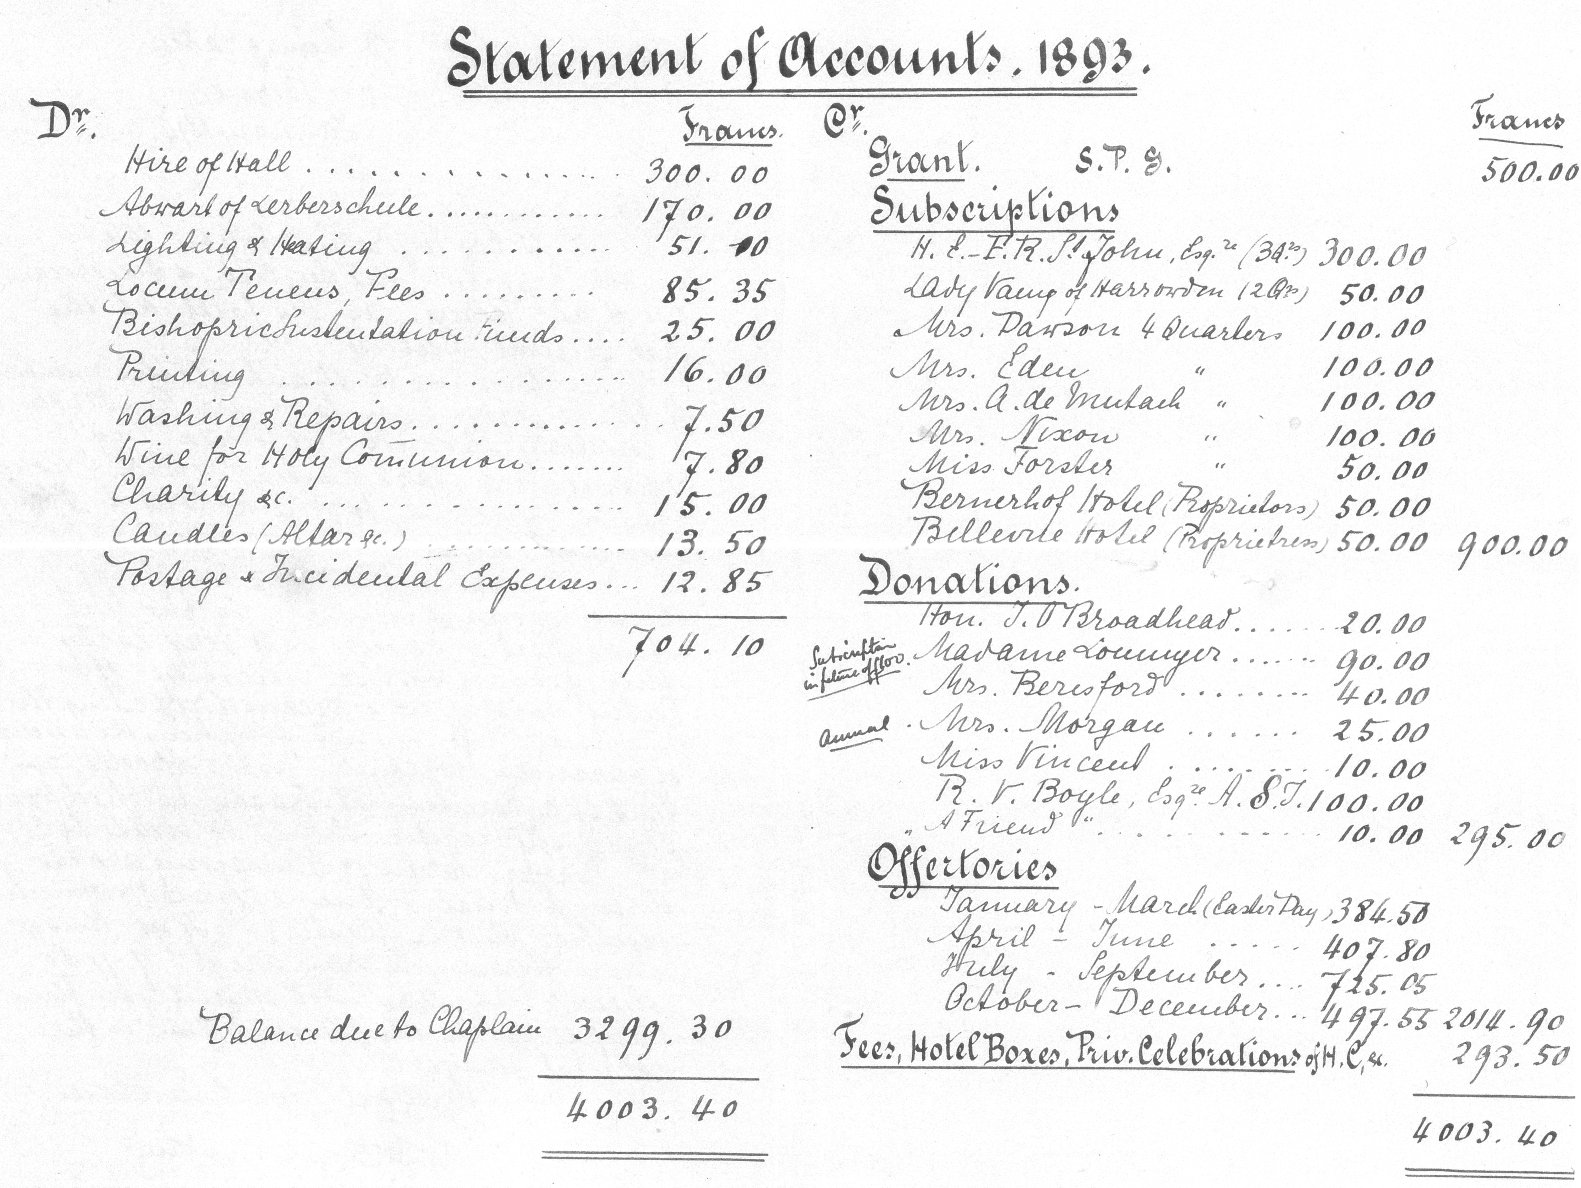 Statement of Accounts. 1893.
Dr.
Francs.
Hire of Hall . . . . . . . . . . . . . . . 300. 00
Abwart of Lerberschule. . . . . . . . . . . . 170. 00
Lighting & Heating . . . . . . . . . . . 51. 10
Locum Tenens, Fees . . . . . . . . . 85. 35
Bishopric Sustentation Funds . . . . 25. 00
Printing . . . . . . . . . . . . . . . . . 16. 00
Washing & Repairs. . . . . . . . . . . . . . 7. 50
Wine for Holy Communion. . . . . . . 7. 80
Charity &c. . . . . . . . . . . . . . . . . 15. 00
Candles (Altar &c.) . . . . . . . . . . . . 13. 50
Postage & Incidental Expenses . . . 12. 85
704. 10
Balance due to Chaplain 3299. 30
4003. 40
Cr.
Francs
Grant. S. P. G. 500.00
Subscriptions
H. E. - F. R. St. John, Esqre (3 Qrs) 300.00
Lady Vaux of Harrowden (2 Qrs) 50.00
Mrs. Dawson 4 Quarters 100.00
Mrs. Eden " 100.00
Mrs. A. de Mutach " 100.00
Mrs. Nixon " 100.00
Miss Forster " 50.00
Bernerhof Hotel (Proprietors) 50.00
Bellevue Hotel (Proprietress) 50.00 900.00
Donations.
Hon. T. O Broadhead. . . . . . 20.00
Subscription in future of
Madame . . . . . . 90.00
Mrs. Beresford . . . . . . . . 40.00
Annual . Mrs. Morgan . . . . . . 25.00
Miss Vincent . . . . . . . . . 10.00
R. V. Boyle, Esqre. 100.00
"A Friend" . . . . . . . . . . . . 10.00 295.00
Offertories
January - March (Easter Day) 384.50
April - June . . . . . 407.80
July - September . . . . 725.05
October - December. . . 497.55 2014.90
Fees, Hotel Boxes, Priv. Celebrations of H. C, &c. 293.50
4003. 40